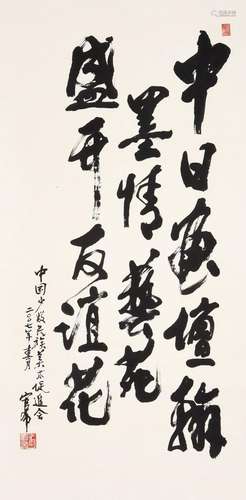 中日画坛翰
墨情艺苑
盛开友谊花
中国少数民族美术促进会
二〇〇七年春月 官布